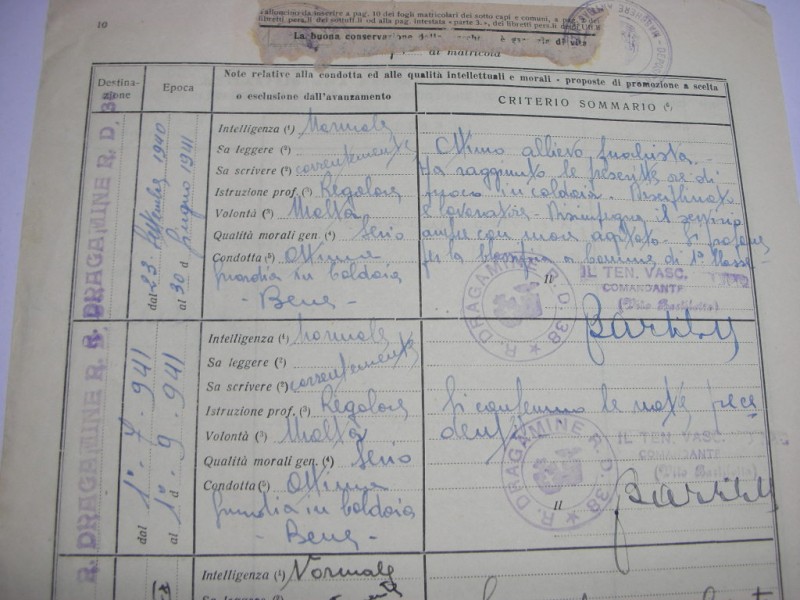 10
all'oncologico inserire a pag. 10 dei fogli matricolari dei sotto capi e comuni, a pag.
libretti pers.li dei sottoff.li od alla pag. intestata « parte 3. », dei libretti pers.li
La buona conservazione è di vita
di matricola
Destinazione
Epoca
Note relative alla condotta ed alle qualità intellettuali e morali - proposte di promozione a scelta
o esclusione dall'avanzamento
CRITERIO SOMMARIO
R. DRAGAMINE R. D. 38
dal 23 Settembre 1940
al 30 Giugno 1941
Intelligenza (¹) Normale
Sa leggere (²)
Sa scrivere (²) correntemente
Istruzione prof. (³) Regolare
Volontà (³) Molta
Qualità morali gen. (⁴) Serio
Condotta (⁵) Ottima
guardia in caldaia
- Bene -
Ottimo allievo fuochista.
Ha raggiunto le prescritte ore di
fuoco in caldaia. Disciplinato
e lavoratore. Disimpegna il servizio
anche con mare agitato. Si propone
per la a comune di 1ª classe
R. DRAGAMINE R. D. 38
Il
IL TEN. VASC.
COMANDANTE
R. DRAGAMINE R.
dal 1° . 7 . 941
al 1° . 9 . 941
Intelligenza (¹) Normale
Sa leggere (²)
Sa scrivere (²) correntemente
Istruzione prof. (³) Regolare
Volontà (³) Molta
Qualità morali gen. (⁴) Serio
Condotta (⁵) Ottima
guardia in caldaia
- Bene -
Si confermano le note prece
denti
R. DRAGAMINE R. D. 38
Il
IL TEN. VASC.
COMANDANTE
R. DRAGAMINE R.
Intelligenza (¹) Normale
Sa leggere (²)